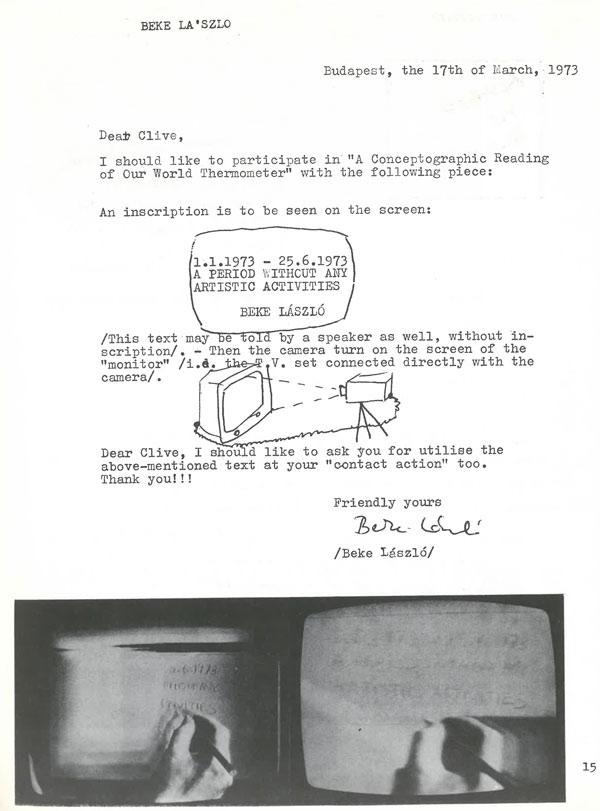 BEKE LA'SZLO
Budapest, the 17th of March, 1973
Dear Clive,
I should like to participate in "A Conceptographic Reading
of Our World Thermometer" with the following piece:
An inscription is to be seen on the screen:
1.1.1973 - 25.6.1973
A PERIOD WITHOUT ANY
ARTISTIC ACTIVITIES
BEKE LÁSZLÓ
/This text may be told by a speaker as well, without in-
scription/. - Then the camera turn on the screen of the
"monitor" /i.e. the T.V. set connected directly with the
camera/.
Dear Clive, I should like to ask you for utilise the
above-mentioned text at your "contact action" too.
Thank you!!!
Friendly yours
Beke László
/Beke László/
15